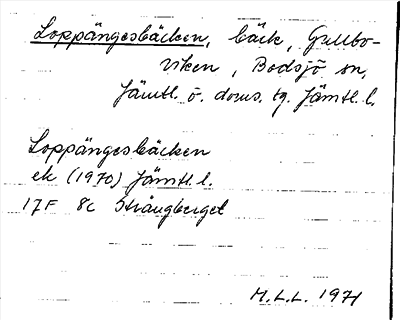 Loppängesbäcken, bäck, Gullbo-
viken, Bodsjö sn,
Jämtl. ö. doms. tg. Jämtl. l.
Loppängesbäcken
ek (1970) Jämtl. l.
17F 8c Strångberget
M.L.L. 1971